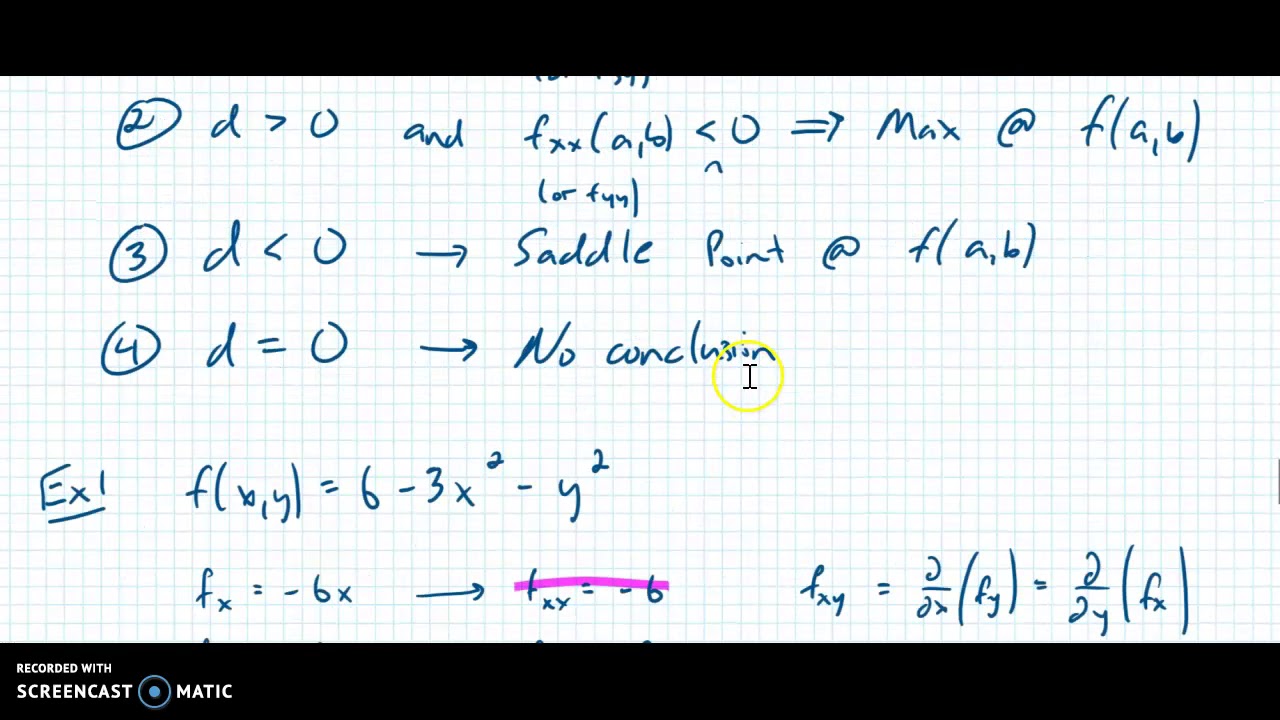 ② d > 0 and fxx(a,b) < 0 ⇒ Max @ f(a,b)
(or fyy)
③ d < 0 → Saddle Point @ f(a,b)
④ d = 0 → No conclusion
Ex1 f(x,y) = 6 - 3x² - y²
fx = -6x → fxx = -6 fxy = ∂/∂x (fy) = ∂/∂y (fx)
RECORDED WITH
SCREENCAST MATIC